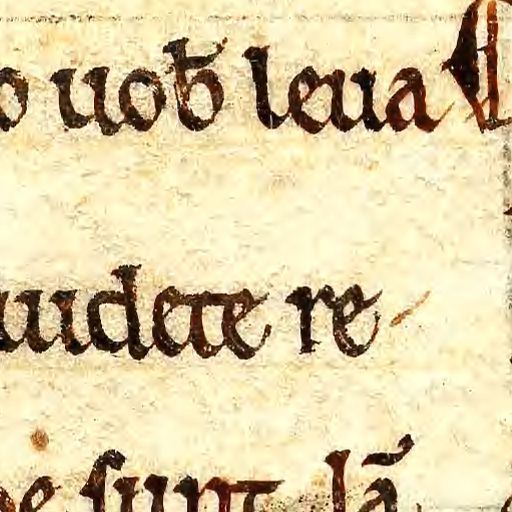 o uob̄ leua
uidete re-
sunt lā